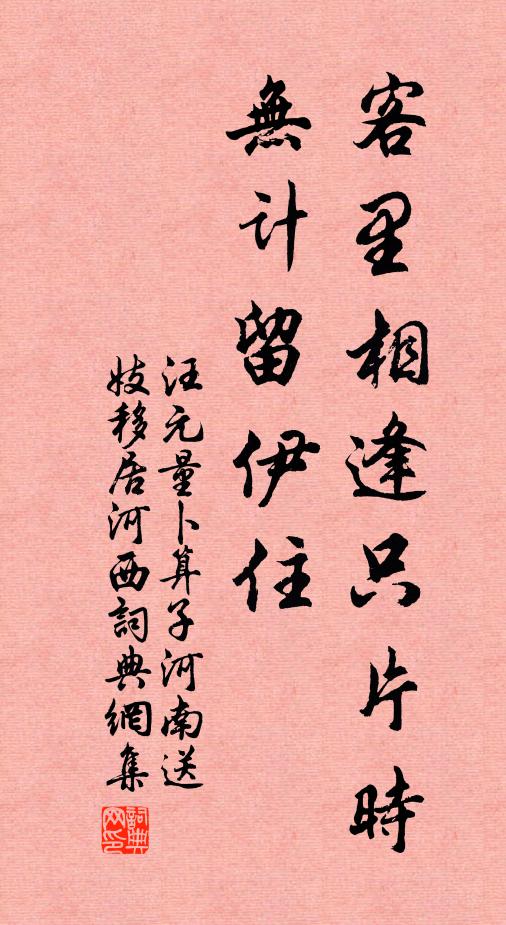 客里相逢只片時
無計留伊住
汪元量卜算子河南送
妓移居河西詞典網集
詞典網印